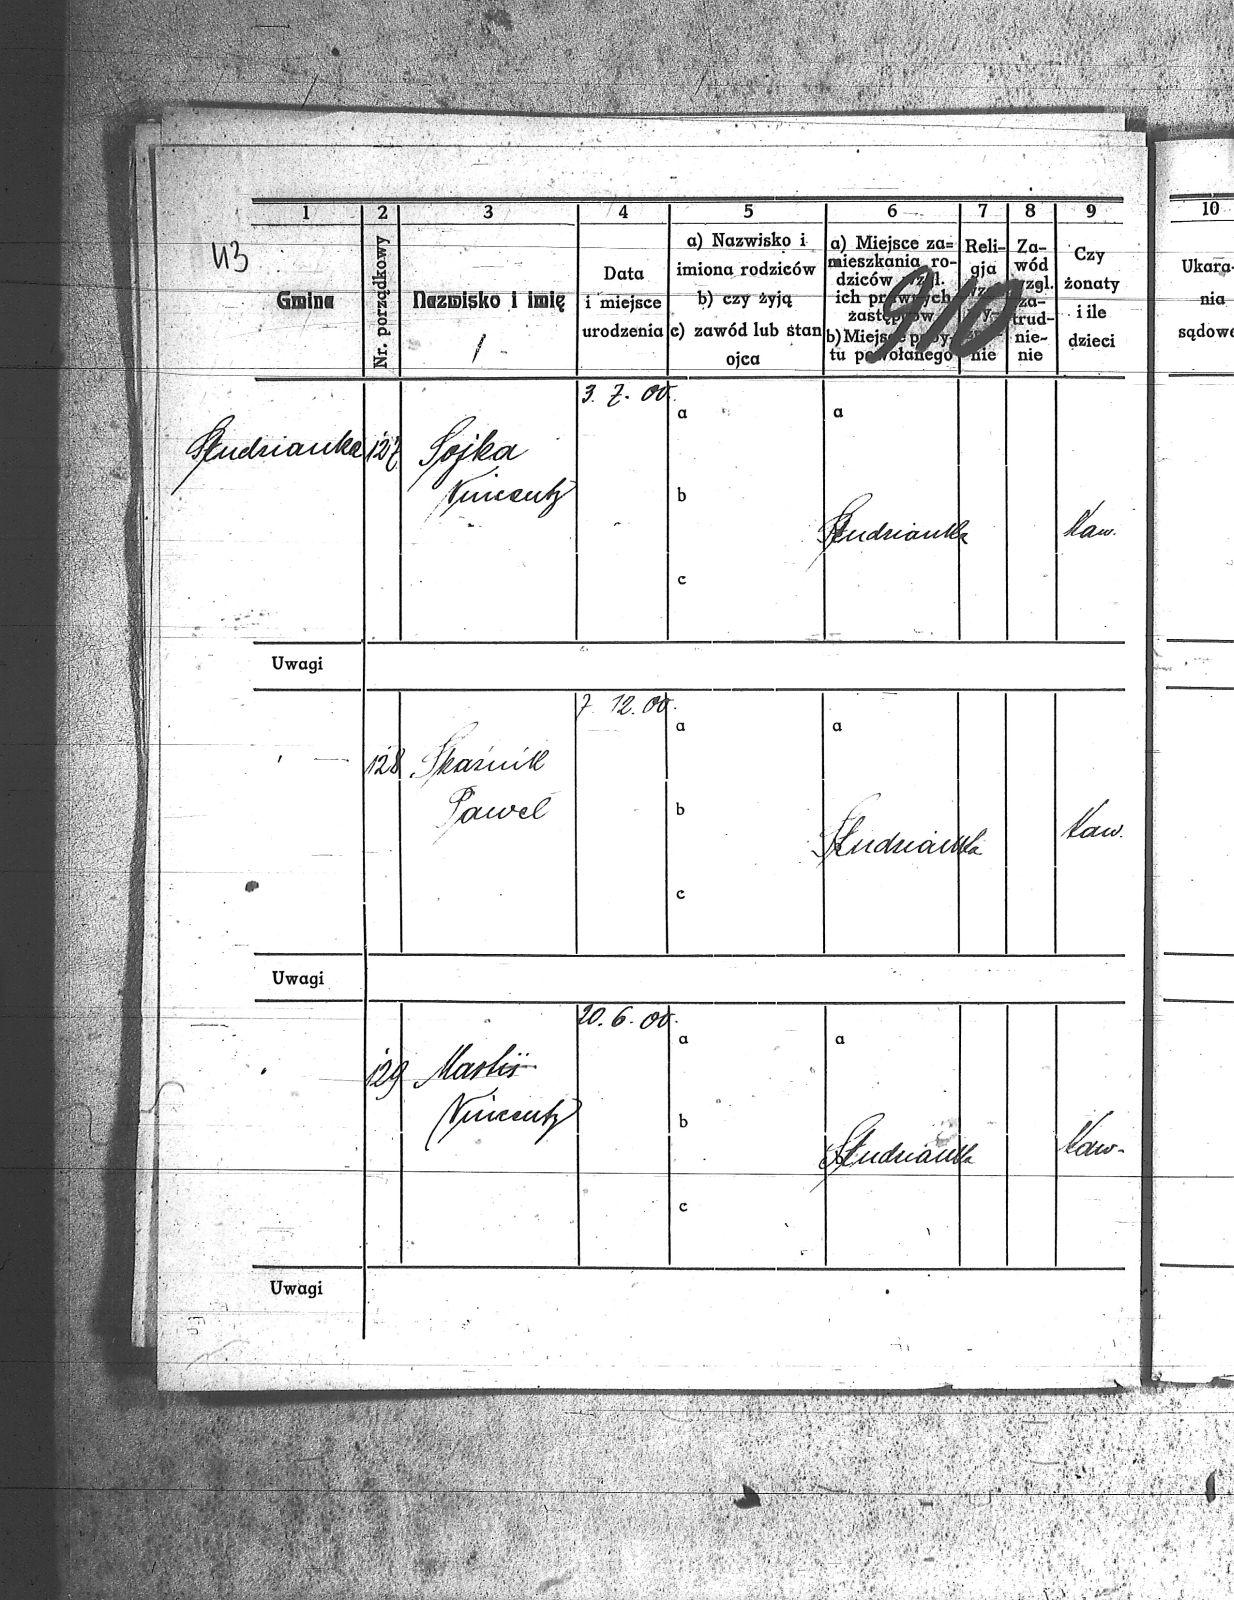 43
1 2 3 4 5 6 7 8 9 10
Gmina
Nr. porządkowy
Nazwisko i imię
1
Data
i miejsce
urodzenia
a) Nazwisko i
imiona rodziców
b) czy żyją
c) zawód lub stan
ojca
a) Miejsce za=
mieszkania ro-
dziców wzgl.
ich prawnych
zastępców
b) Miejsce poby-
tu powołanego
910
Reli-
gja
nie
Za-
wód
wzgl.
za-
trud-
nie-
nie
Czy
żonaty
i ile
dzieci
Ukara-
nia
sądowe
3. 7. 00.
a a
Studzianka 127 Sojka
Vincentz
b
Studzianka Kaw.
c
Uwagi
7. 12. 00.
a a
128 Skaźnik
Paweł
b
Studzianka Kaw.
c
Uwagi
20. 6. 00.
a a
129
Vincentz
b
Studzianka Kaw.
c
Uwagi